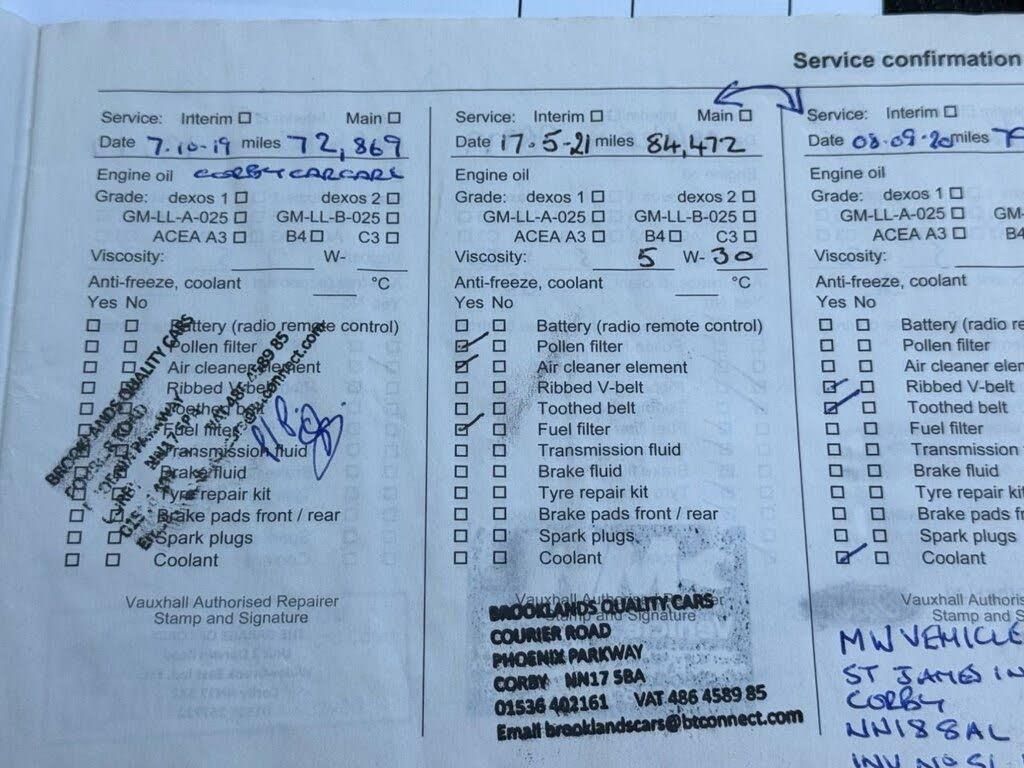 Service confirmation
Service: Interim Main
Date 7.10-19 miles 72,869
Engine oil CORBY CARCARE
Grade: dexos 1 dexos 2
GM-LL-A-025 GM-LL-B-025
ACEA A3 B4 C3
Viscosity: W-
Anti-freeze, coolant °C
Yes No
Battery (radio remote control)
Pollen filter
Air cleaner element
Ribbed V-belt
Toothed belt
Fuel filter
Transmission fluid
Brake fluid
Tyre repair kit
Brake pads front / rear
Spark plugs
Coolant
BROOKLANDS QUALITY CARS
Vauxhall Authorised Repairer
Stamp and Signature
Service: Interim Main
Date 17.5-21 miles 84,472
Engine oil
Grade: dexos 1 dexos 2
GM-LL-A-025 GM-LL-B-025
ACEA A3 B4 C3
Viscosity: 5 W- 30
Anti-freeze, coolant °C
Yes No
Battery (radio remote control)
Pollen filter
Air cleaner element
Ribbed V-belt
Toothed belt
Fuel filter
Transmission fluid
Brake fluid
Tyre repair kit
Brake pads front / rear
Spark plugs
Coolant
Vauxhall Authorised Repairer
Stamp and Signature
BROOKLANDS QUALITY CARS
COURIER ROAD
PHOENIX PARKWAY
CORBY NN17 5BA
01536 402161 VAT 486 4589 85
Email brooklandscars@btconnect.com
Service: Interim
Date 08.09.20 miles 79
Engine oil
Grade: dexos 1
GM-LL-A-025 GM-
ACEA A3 B
Viscosity:
Anti-freeze, coolant
Yes No
Battery (radio re
Pollen filter
Air cleaner elem
Ribbed V-belt
Toothed belt
Fuel filter
Transmission
Brake fluid
Tyre repair kit
Brake pads f
Spark plugs
Coolant
Vauxhall Authoris
Stamp and S
MW VEHICLE
ST JAMES IN
CORBY
NN18 8AL
INV NO SI